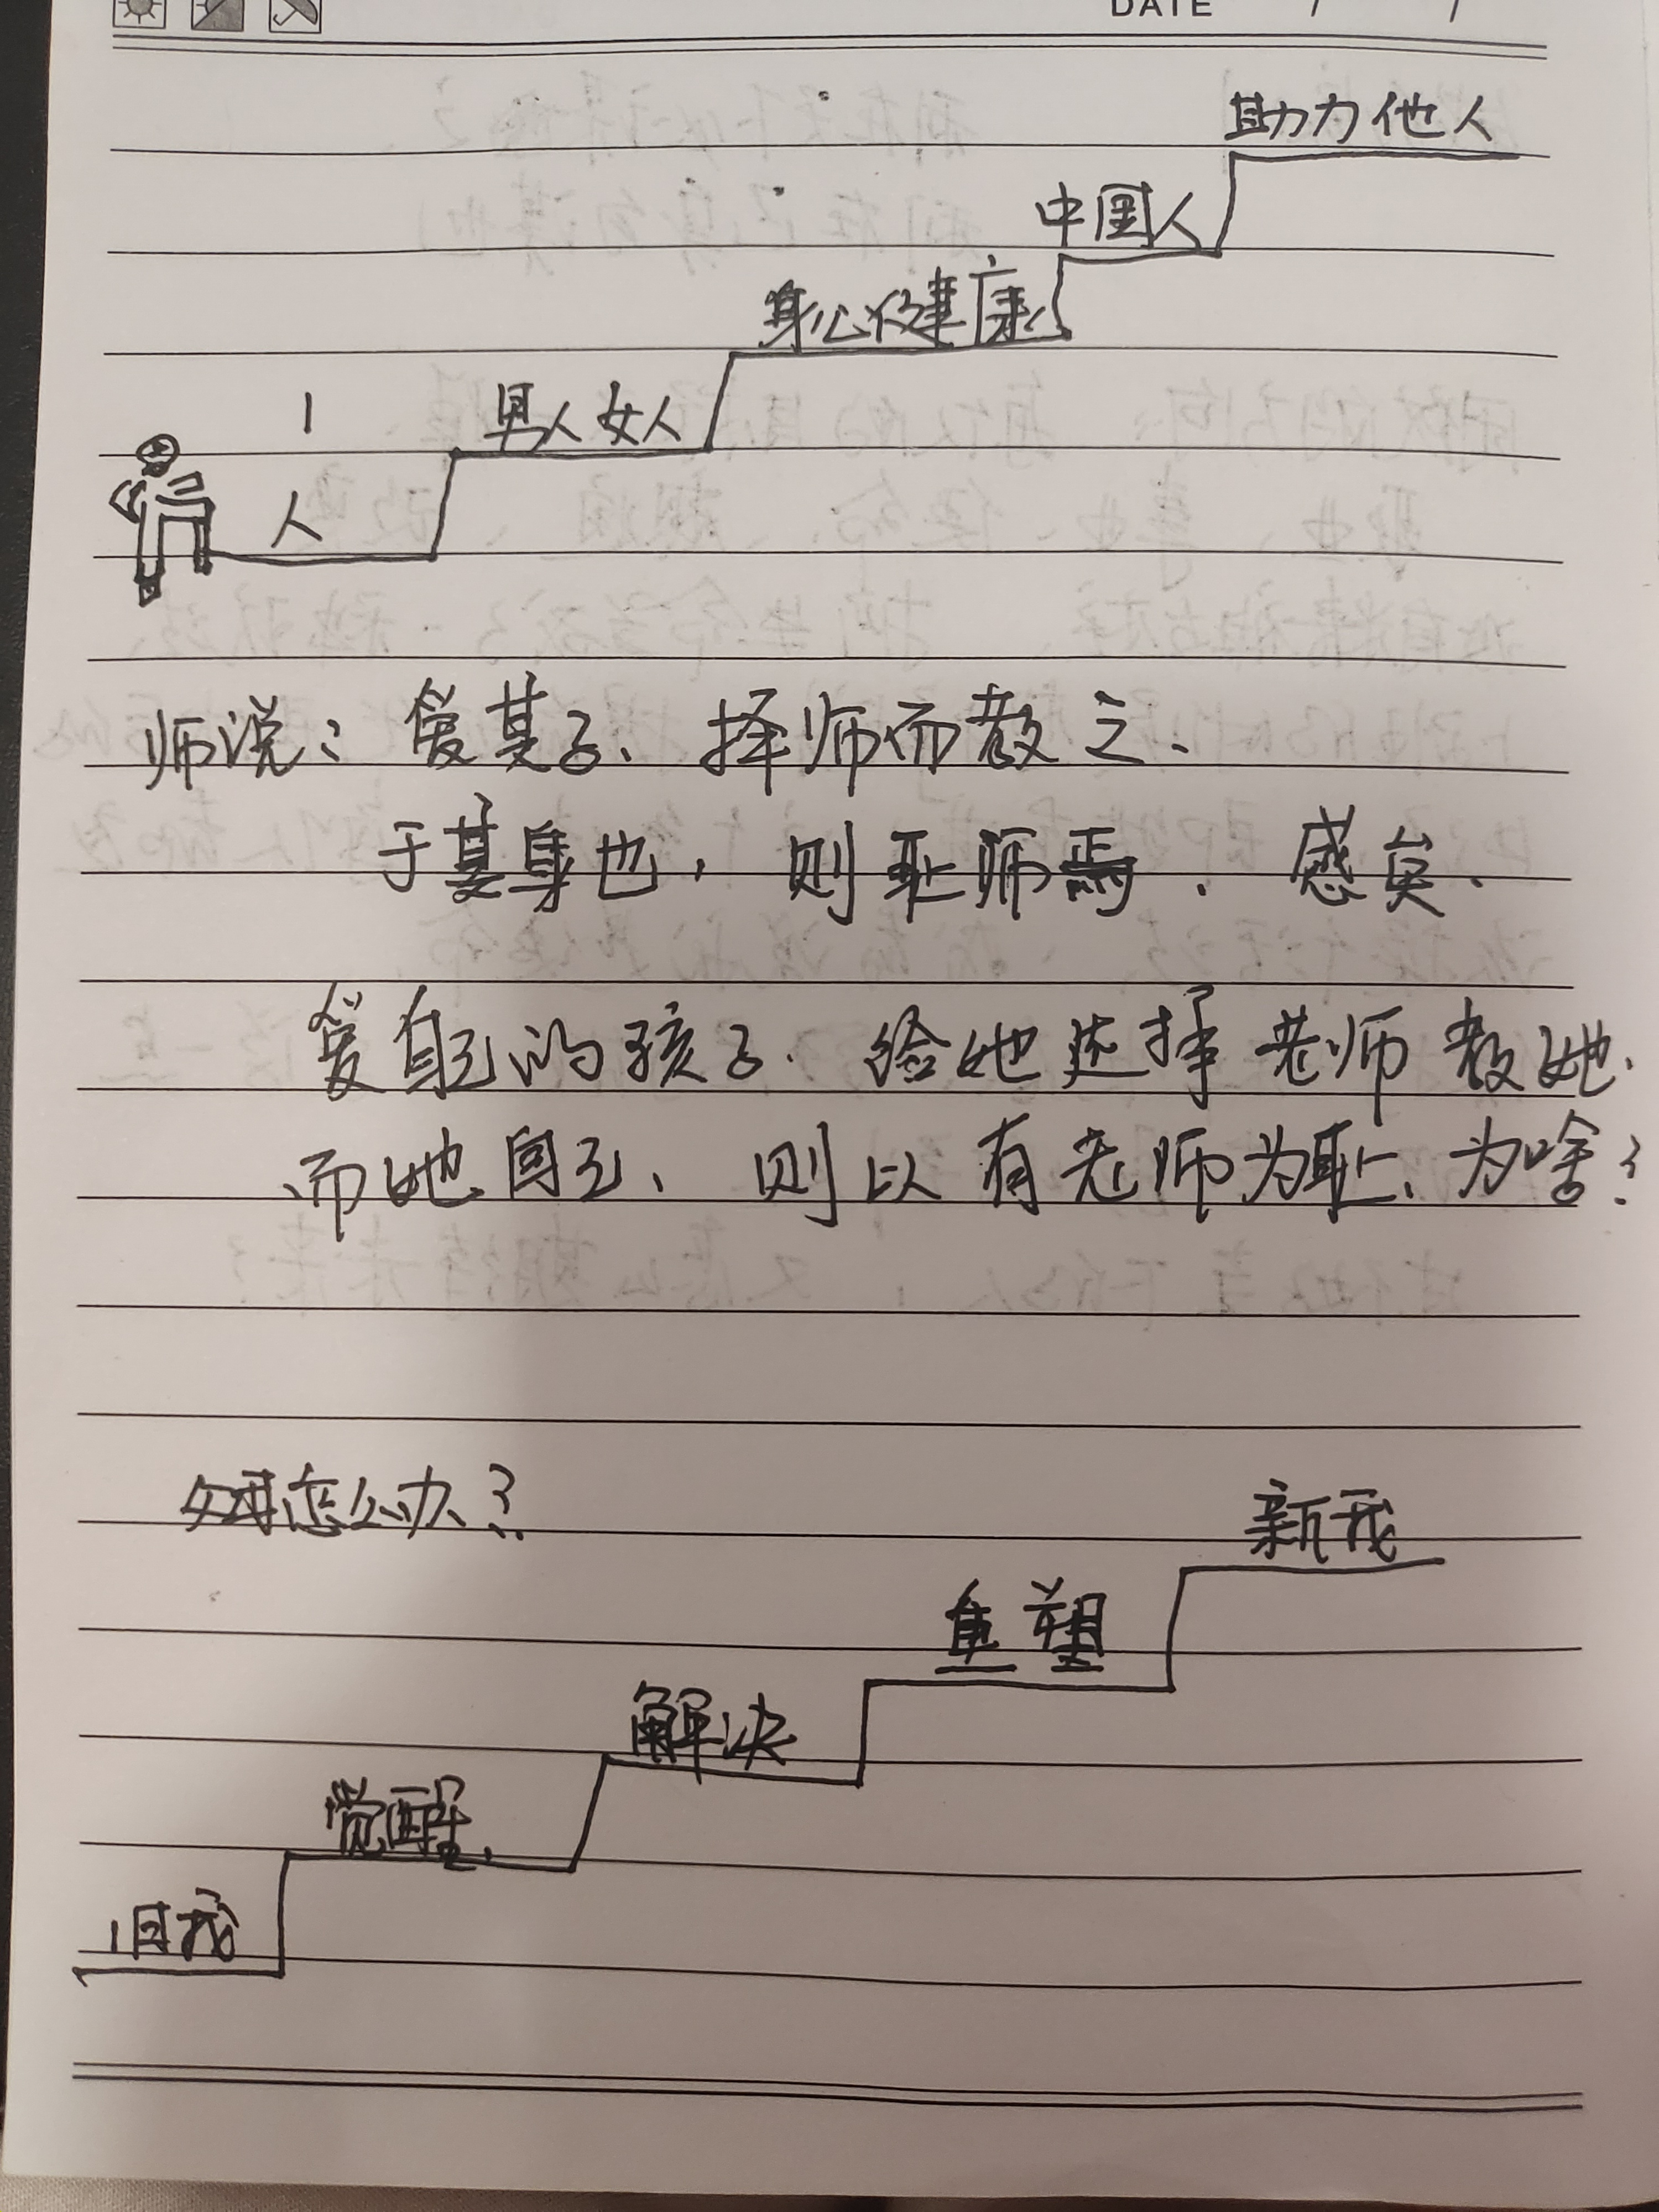 DATE / /
助力他人
中国人
身心健康
男人女人
1
人
师说：爱其子、择师而教之、
于其身也，则耻师焉．惑矣．
爱自己的孩子．给她选择老师教她．
而她自己、则以有老师为耻、为啥？
父母怎么办？
新我
重塑
解决
觉醒．
旧我